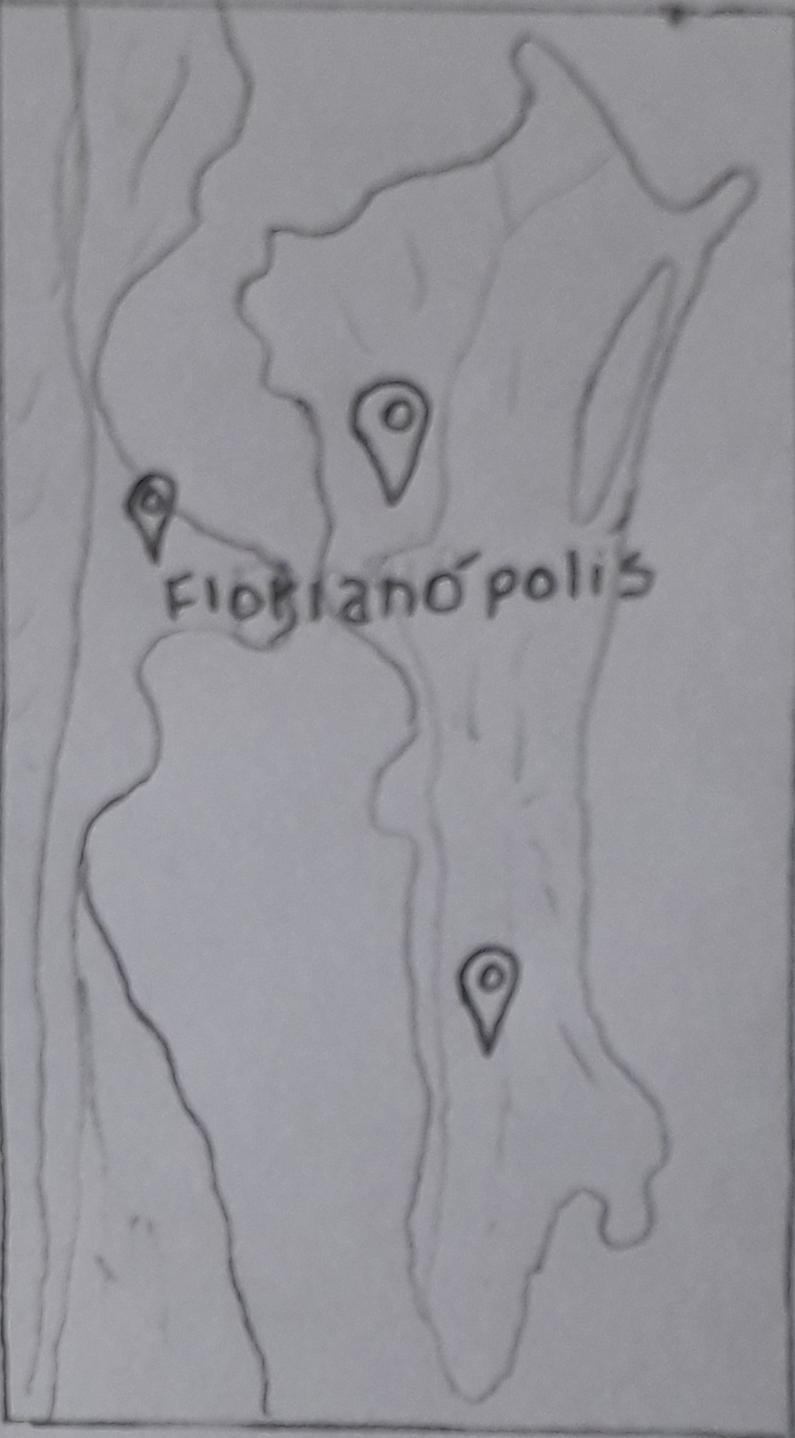 Florianópolis